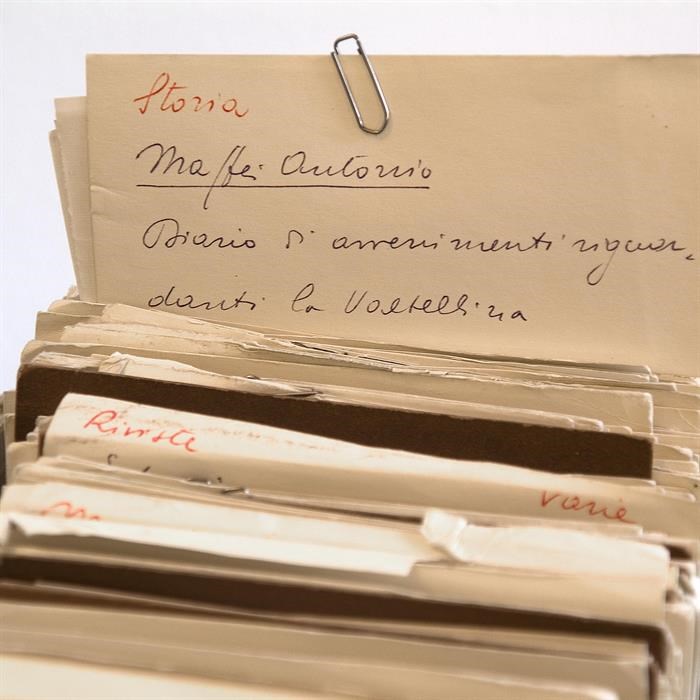 Storia
Maffei Antonio
Diario di avvenimenti riguar-
danti la Valtellina
Riviste
varie